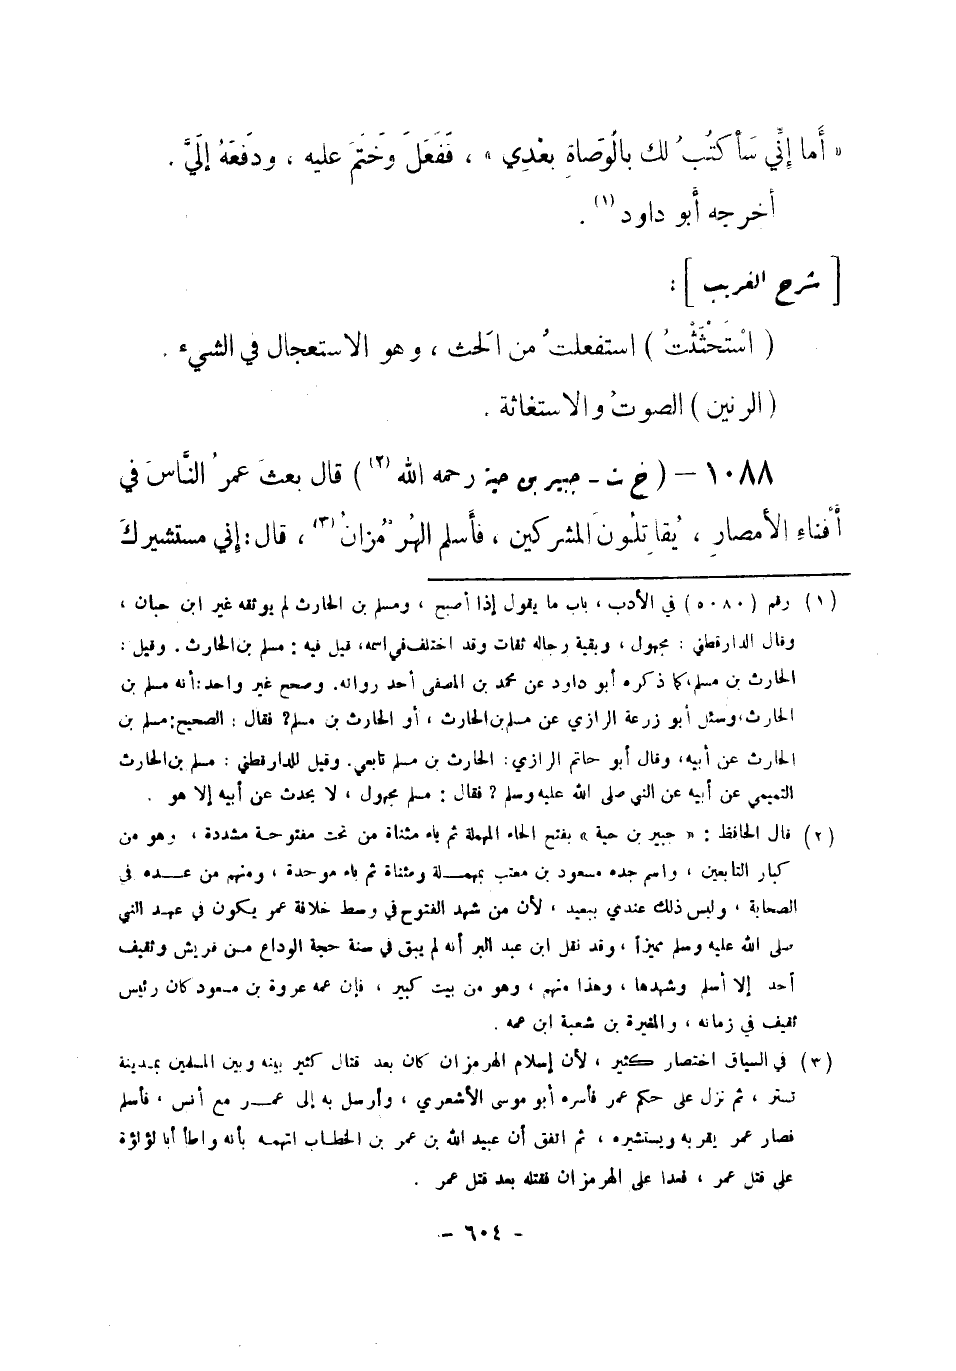 « أَما إِنِّي سَأَكتُبُ لك بالوَصَاةِ بعْدِي » ، فَفَعَلَ وَخَتَمَ عليه ، ودفَعَهُ إِلَيَّ .
أخرجه أبو داود (١) .
[ شرح الغريب ] :
( اسْتَحْثَثْتُ ) استفعلتُ من الحث ، وهو الاستعجال في الشيء .
( الرنين ) الصوتُ والاستغاثة .
١٠٨٨ – ( خ ت - جبير بن حية رحمه الله (٢) ) قال بعثَ عمرُ النَّاسَ في
أفْناءِ الأمصارِ ، يُقاتِلُونَ المشركين ، فأَسلم الهُرْمُزانُ (٣) ، قال : إني مستشيركَ
(١) رقم (٥٠٨٠) في الأدب ، باب ما يقول إذا أصبح ، ومسلم بن الحارث لم يوثقه غير ابن حبان ،
وقال الدارقطني : مجهول ، وبقية رجاله ثقات وقد اختلف في اسمه، قيل فيه : مسلم بن الحارث . وقيل :
الحارث بن مسلم، كما ذكره أبو داود عن محمد بن المصفى أحد رواته. وصحح غير واحد: أنه مسلم بن
الحارث، وسئل أبو زرعة الرازي عن مسلم بن الحارث ، أو الحارث بن مسلم؟ فقال : الصحيح: مسلم بن
الحارث عن أبيه، وقال أبو حاتم الرازي : الحارث بن مسلم تابعي. وقيل للدارقطني : مسلم بن الحارث
التميمي عن أبيه عن النبي صلى الله عليه وسلم ؟ فقال : مسلم مجهول ، لا يحدث عن أبيه إلا هو .
(٢) قال الحافظ : « جبير بن حية » بفتح الحاء المهملة ثم ياء مثناة من تحت مفتوحة مشددة ، وهو من
كبار التابعين ، واسم جده مسعود بن معتب بمهملة ومثناة ثم باء موحدة ، ومنهم من عده في
الصحابة ، وليس ذلك عندي ببعيد ، لأن من شهد الفتوح في وسط خلافة عمر يكون في عهد النبي
صلى الله عليه وسلم مميزاً ، وقد نقل ابن عبد البر أنه لم يبق في سنة حجة الوداع من قريش وثقيف
أحد إلا أسلم وشهدها ، وهذا منهم ، وهو من بيت كبير ، فإن عمه عروة بن مسعود كان رئيس
ثقيف في زمانه ، والمغيرة بن شعبة ابن عمه .
(٣) في السياق اختصار كثير ، لأن إسلام الهرمزان كان بعد قتال كثير بينه وبين المسلمين بمدينة
تستر ، ثم نزل على حكم عمر فأسره أبو موسى الأشعري ، وأرسل به إلى عمر مع أنس ، فأسلم
فصار عمر يقربه ويستشيره ، ثم اتفق أن عبيد الله بن عمر بن الخطاب اتهمه بأنه واطأ أبا لؤلؤة
على قتل عمر ، فعدا على الهرمزان فقتله بعد قتل عمر .
- ٦٠٤ -